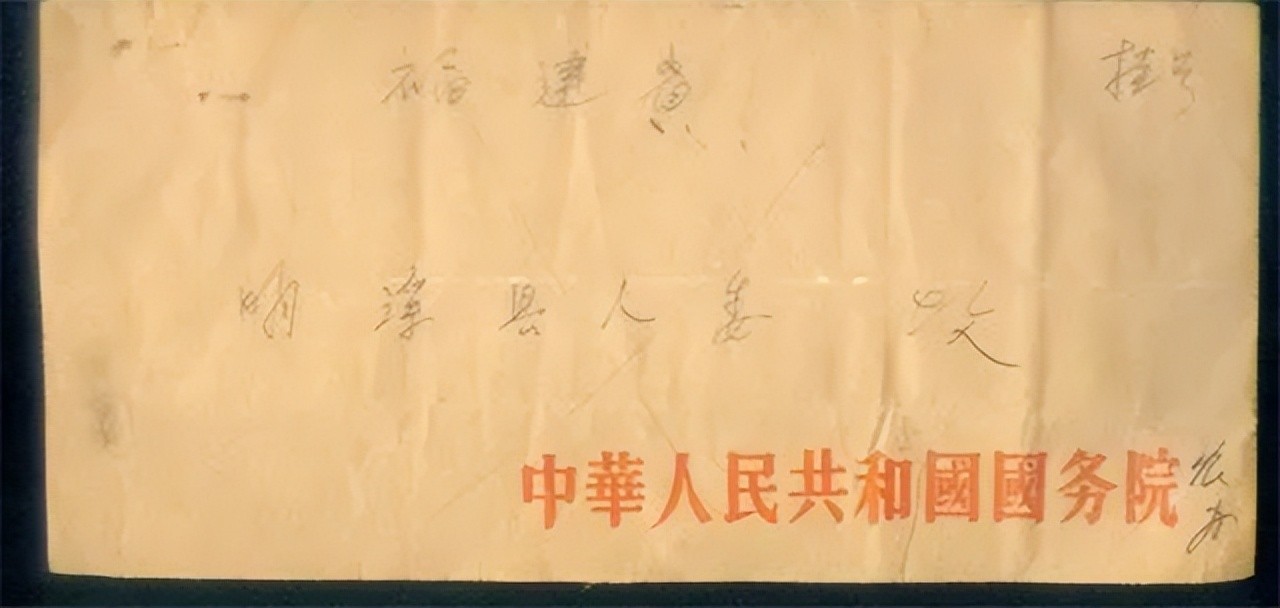 福建省 挂号
明溪县人委 收
中華人民共和國國务院 农办